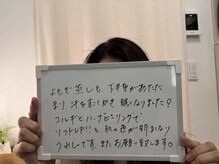 よもぎ蒸しも 下半身があたた
まり 汗を良くかき 眠くなりました？
コルギとハーブピーリングで
リフトUP!!と 肌の色が明るくなり
うれしいです。またお願い致します。